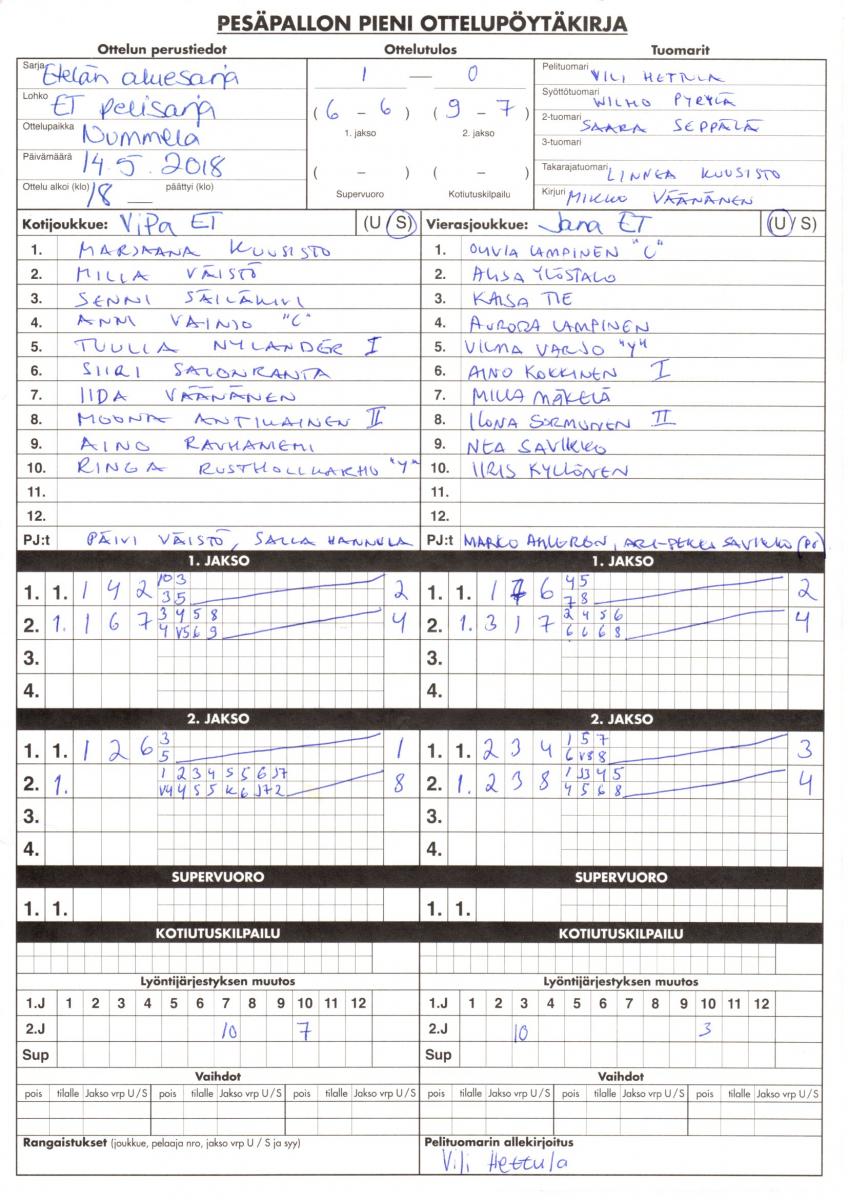 PESÄPALLON PIENI OTTELUPÖYTÄKIRJA
Ottelun perustiedot Ottelutulos Tuomarit
Sarja Etelän aluesarja
Lohko ET pelisarja
Ottelupaikka Nummela
Päivämäärä 14.5.2018
Ottelu alkoi (klo) 18 päättyi (klo)
1 — 0
( 6 - 6 ) ( 9 - 7 )
1. jakso 2. jakso
( - ) ( - )
Supervuoro Kotiutuskilpailu
Pelituomari VILI HETTULA
Syöttötuomari WILHO PYRYLÄ
2-tuomari SAARA SEPPÄLÄ
3-tuomari
Takarajatuomari LINNEA KUUSISTO
Kirjuri MIKKO VÄÄNÄNEN
Kotijoukkue: ViPa ET (U / S)
1. MARJAANA KUUSISTO
2. MILLA VÄISTÖ
3. SENNI SÄILÄKIVI
4. ANNI VAINJO "C"
5. TUULLA NYLANDER I
6. SIIRI SALONRANTA
7. IIDA VÄÄNÄNEN
8. MOONA ANTIKAINEN II
9. AINO RAUHANIEMI
10. RINGA RUSTHOLLKARHU "Y"
11.
12.
PJ:t PÄIVI VÄISTÖ, SALLA HANNULA
Vierasjoukkue: Jana ET (U / S)
1. OLIVIA LAMPINEN "C"
2. ALISA YLÖSTALO
3. KAISA TIE
4. AURORA LAMPINEN
5. VILMA VARJO "Y"
6. AINO KOKKINEN I
7. MILLA MÄKELÄ
8. ILONA SORMUNEN II
9. NEA SAVIKKO
10. IIRIS KYLLÖNEN
11.
12.
PJ:t MARKO AHLGRON, ARI-PEKKA SAVIKKO (PJ)
1. JAKSO 1. JAKSO
1. 1. 1 4 2 10 3 2
3 5
2. 1. 1 6 7 3 4 5 8 4
4 V5 6 9
3.
4.
1. 1. 1 6 4 5 2
7 8
2. 1. 3 1 7 2 4 5 6 4
6 6 6 8
3.
4.
2. JAKSO 2. JAKSO
1. 1. 1 2 6 3 1
5
2. 1. 1 2 3 4 5 5 6 J7 8
V4 4 5 5 K 6 J7 2
3.
4.
1. 1. 2 3 4 1 5 7 3
6 V8 8
2. 1. 2 3 8 1 J3 4 5 4
4 5 6 8
3.
4.
SUPERVUORO SUPERVUORO
1. 1. 1. 1.
KOTIUTUSKILPAILU KOTIUTUSKILPAILU
Lyöntijärjestyksen muutos Lyöntijärjestyksen muutos
1.J 1 2 3 4 5 6 7 8 9 10 11 12 1.J 1 2 3 4 5 6 7 8 9 10 11 12
2.J 10 7 2.J 10 3
Sup Sup
Vaihdot Vaihdot
pois tilalle Jakso vrp U / S pois tilalle Jakso vrp U / S pois tilalle Jakso vrp U / S pois tilalle Jakso vrp U / S pois tilalle Jakso vrp U / S pois tilalle Jakso vrp U / S
Rangaistukset (joukkue, pelaaja nro, jakso vrp U / S ja syy) Pelituomarin allekirjoitus
Vili Hettula